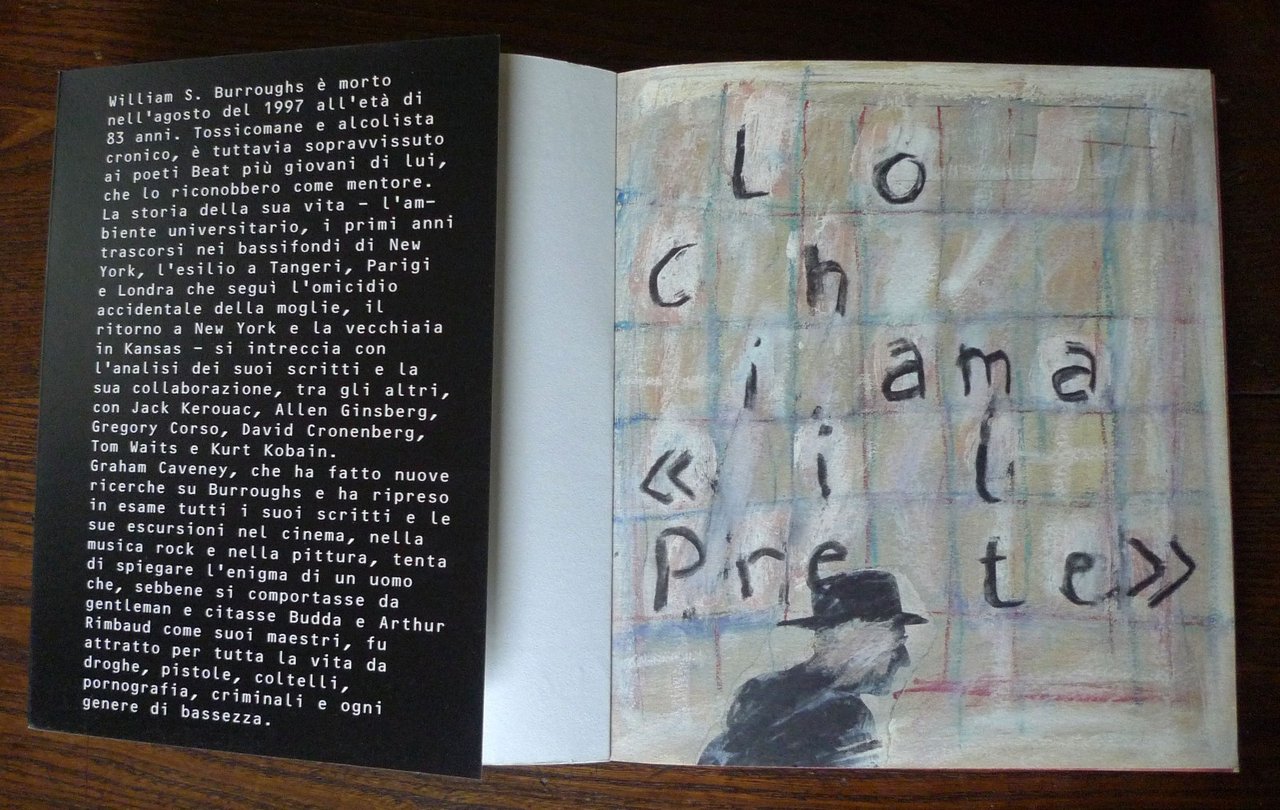 William S. Burroughs è morto
nell'agosto del 1997 all'età di
83 anni. Tossicomane e alcolista
cronico, è tuttavia sopravvissuto
ai poeti Beat più giovani di lui,
che lo riconobbero come mentore.
La storia della sua vita – l'am-
biente universitario, i primi anni
trascorsi nei bassifondi di New
York, l'esilio a Tangeri, Parigi
e Londra che seguì l'omicidio
accidentale della moglie, il
ritorno a New York e la vecchiaia
in Kansas – si intreccia con
l'analisi dei suoi scritti e la
sua collaborazione, tra gli altri,
con Jack Kerouac, Allen Ginsberg,
Gregory Corso, David Cronenberg,
Tom Waits e Kurt Kobain.
Graham Caveney, che ha fatto nuove
ricerche su Burroughs e ha ripreso
in esame tutti i suoi scritti e le
sue escursioni nel cinema, nella
musica rock e nella pittura, tenta
di spiegare l'enigma di un uomo
che, sebbene si comportasse da
gentleman e citasse Budda e Arthur
Rimbaud come suoi maestri, fu
attratto per tutta la vita da
droghe, pistole, coltelli,
pornografia, criminali e ogni
genere di bassezza.
Lo
Ch
iama
«il
Prete»